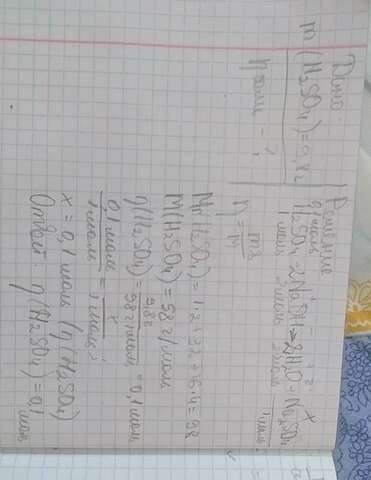 Дано:
m(H₂SO₄)=9,8г
n соли - ?
Решение
0,1моль x
H₂SO₄+2NaOH=2H₂O+Na₂SO₄
1моль 2моль 2моль 1моль
n = m/M
Mr(H₂SO₄)=1·2+32+16·4=98
M(H₂SO₄)=98г/моль
n(H₂SO₄)=9,8г/98г/моль=0,1моль
0,1моль/1моль=x/1моль;
x=0,1моль (n/H₂SO₄)
Ответ: n(H₂SO₄)=0,1
моль